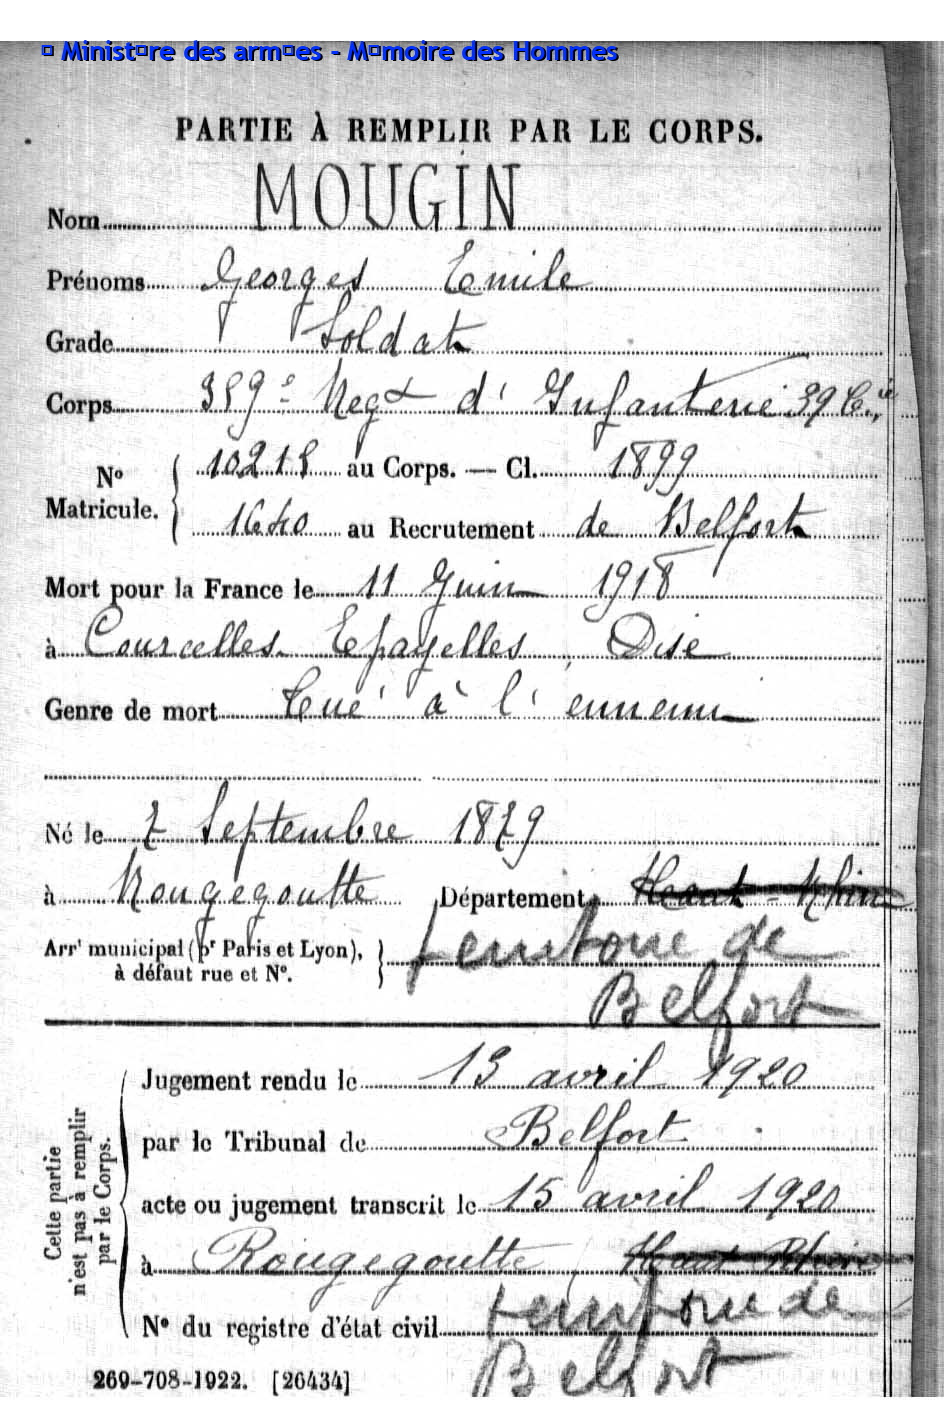 Minist re des arm es - M moire des Hommes
PARTIE À REMPLIR PAR LE CORPS.
Nom MOUGIN
Prénoms Georges Emile
Grade Soldat
Corps 359e Regt d'Infanterie 39 Cie
N° Matricule. 10215 au Corps. — Cl. 1899
1640 au Recrutement de Belfort
Mort pour la France le 11 Juin 1918
à Courcelles Epayelles, Oise
Genre de mort Tué à l'ennemi
Né le 7 Septembre 1879
à Rougegoutte Département Haut-Rhin
Arrt municipal (pr Paris et Lyon), territoire de
à défaut rue et N°. Belfort
Cette partie n'est pas à remplir par le Corps.
Jugement rendu le 13 avril 1920
par le Tribunal de Belfort
acte ou jugement transcrit le 15 avril 1920
à Rougegoutte Haut Rhin
N° du registre d'état civil territoire de
Belfort
269-708-1922. [26434]